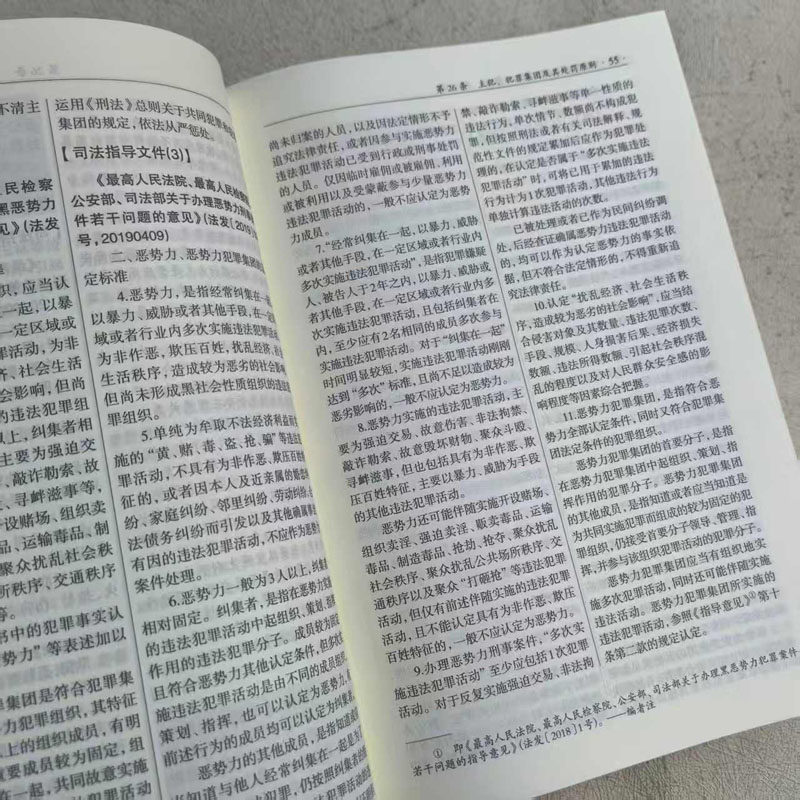 不清主
民检察
黑恶势力
见》(法发
织,应当认
一起,以暴
一定区域或
活动,为非
济、社会生活
会影响,但尚
的违法犯罪组
以上,纠集者相
主要为强迫交
、敲诈勒索、故
、寻衅滋事等,
开设赌场、组织卖
毒品、运输毒品、制
、聚众扰乱社会秩
所秩序、交通秩序
等。
书中的犯罪事实认
势力”等表述加以
集团是符合犯罪集
罪组织,其特征
上的组织成员,有明
重要成员较为固定,组
在一起,共同故意实施
运用《刑法》总则关于共同犯罪和
集团的规定,依法从严惩处。
【司法指导文件(3)】
《最高人民法院、最高人民检察院
公安部、司法部关于办理恶势力刑
件若干问题的意见》(法发〔2019
号,20190409)
二、恶势力、恶势力犯罪集团的
定标准
4.恶势力,是指经常纠集在一
以暴力、威胁或者其他手段,在一定
域或者行业内多次实施违法犯罪活
为非作恶,欺压百姓,扰乱经济、社
生活秩序,造成较为恶劣的社会影
但尚未形成黑社会性质组织的违法
罪组织。
5.单纯为牟取不法经济利益而
施的“黄、赌、毒、盗、抢、骗”等违法
罪活动,不具有为非作恶、欺压百姓
征的,或者因本人及近亲属的婚恋
纷、家庭纠纷、邻里纠纷、劳动纠纷、
法债务纠纷而引发以及其他确属事
有因的违法犯罪活动,不应作为恶势
案件处理。
6.恶势力一般为3人以上,纠集
相对固定。纠集者,是指在恶势力实
的违法犯罪活动中起组织、策划、指挥
作用的违法犯罪分子。成员较为固
且符合恶势力其他认定条件,但多次
施违法犯罪活动是由不同的成员组织、
策划、指挥,也可以认定为恶势力,
前述行为的成员均可以认定为纠集
恶势力的其他成员,是指知道或
应当知道与他人经常纠集在一起是为
犯罪,仍按照纠集者
第26条 主犯、犯罪集团及其处罚原则 ·55·
尚未归案的人员,以及因法定情形不予
追究法律责任,或者因参与实施恶势力
违法犯罪活动已受到行政或刑事处罚
的人员。仅因临时雇佣或被雇佣、利用
或被利用以及受蒙蔽参与少量恶势力
违法犯罪活动的,一般不应认定为恶势
力成员。
7.“经常纠集在一起,以暴力、威胁
或者其他手段,在一定区域或者行业内
多次实施违法犯罪活动”,是指犯罪嫌疑
人、被告人于2年之内,以暴力、威胁或
者其他手段,在一定区域或者行业内多
次实施违法犯罪活动,且包括纠集者在
内,至少应有2名相同的成员多次参与
实施违法犯罪活动。对于“纠集在一起”
时间明显较短,实施违法犯罪活动刚刚
达到“多次”标准,且尚不足以造成较为
恶劣影响的,一般不应认定为恶势力。
8.恶势力实施的违法犯罪活动,主
要为强迫交易、故意伤害、非法拘禁、
敲诈勒索、故意毁坏财物、聚众斗殴、
寻衅滋事,但也包括具有为非作恶、欺
压百姓特征,主要以暴力、威胁为手段
的其他违法犯罪活动。
恶势力还可能伴随实施开设赌场、
组织卖淫、强迫卖淫、贩卖毒品、运输
毒品、制造毒品、抢劫、抢夺、聚众扰乱
社会秩序、聚众扰乱公共场所秩序、交
通秩序以及聚众“打砸抢”等违法犯罪
活动,但仅有前述伴随实施的违法犯罪
活动,且不能认定具有为非作恶、欺压
百姓特征的,一般不应认定为恶势力。
9.办理恶势力刑事案件,“多次实
施违法犯罪活动”至少应包括1次犯罪
活动。对于反复实施强迫交易、非法拘
禁、敲诈勒索、寻衅滋事等单一性质的
违法行为,单次情节、数额尚不构成犯
罪,但按照刑法或者有关司法解释、规
范性文件的规定累加后应作为犯罪处
理的,在认定是否属于“多次实施违法
犯罪活动”时,可将已用于累加的违法
行为计为1次犯罪活动,其他违法行为
单独计算违法活动的次数。
已被处理或者已作为民间纠纷调
处,后经查证确属恶势力违法犯罪活动
的,均可以作为认定恶势力的事实依
据,但不符合法定情形的,不得重新追
究法律责任。
10.认定“扰乱经济、社会生活秩
序,造成较为恶劣的社会影响”,应当结
合侵害对象及其数量、违法犯罪次数、
手段、规模、人身损害后果、经济损失
数额、违法所得数额、引起社会秩序混
乱的程度以及对人民群众安全感的影
响程度等因素综合把握。
11.恶势力犯罪集团,是指符合恶
势力全部认定条件,同时又符合犯罪集
团法定条件的犯罪组织。
恶势力犯罪集团的首要分子,是指
在恶势力犯罪集团中起组织、策划、指
挥作用的犯罪分子。恶势力犯罪集团
的其他成员,是指知道或者应当知道是
为共同实施犯罪而组成的较为固定的犯
罪组织,仍接受首要分子领导、管理、指
挥,并参与该组织犯罪活动的犯罪分子。
恶势力犯罪集团应当有组织地实
施多次犯罪活动,同时还可能伴随实施
违法活动。恶势力犯罪集团所实施的
违法犯罪活动,参照《指导意见》①第十
条第二款的规定认定。
① 即《最高人民法院、最高人民检察院、公安部、司法部关于办理黑恶势力犯罪案件
若干问题的指导意见》(法发〔2018〕1号)。——编者注